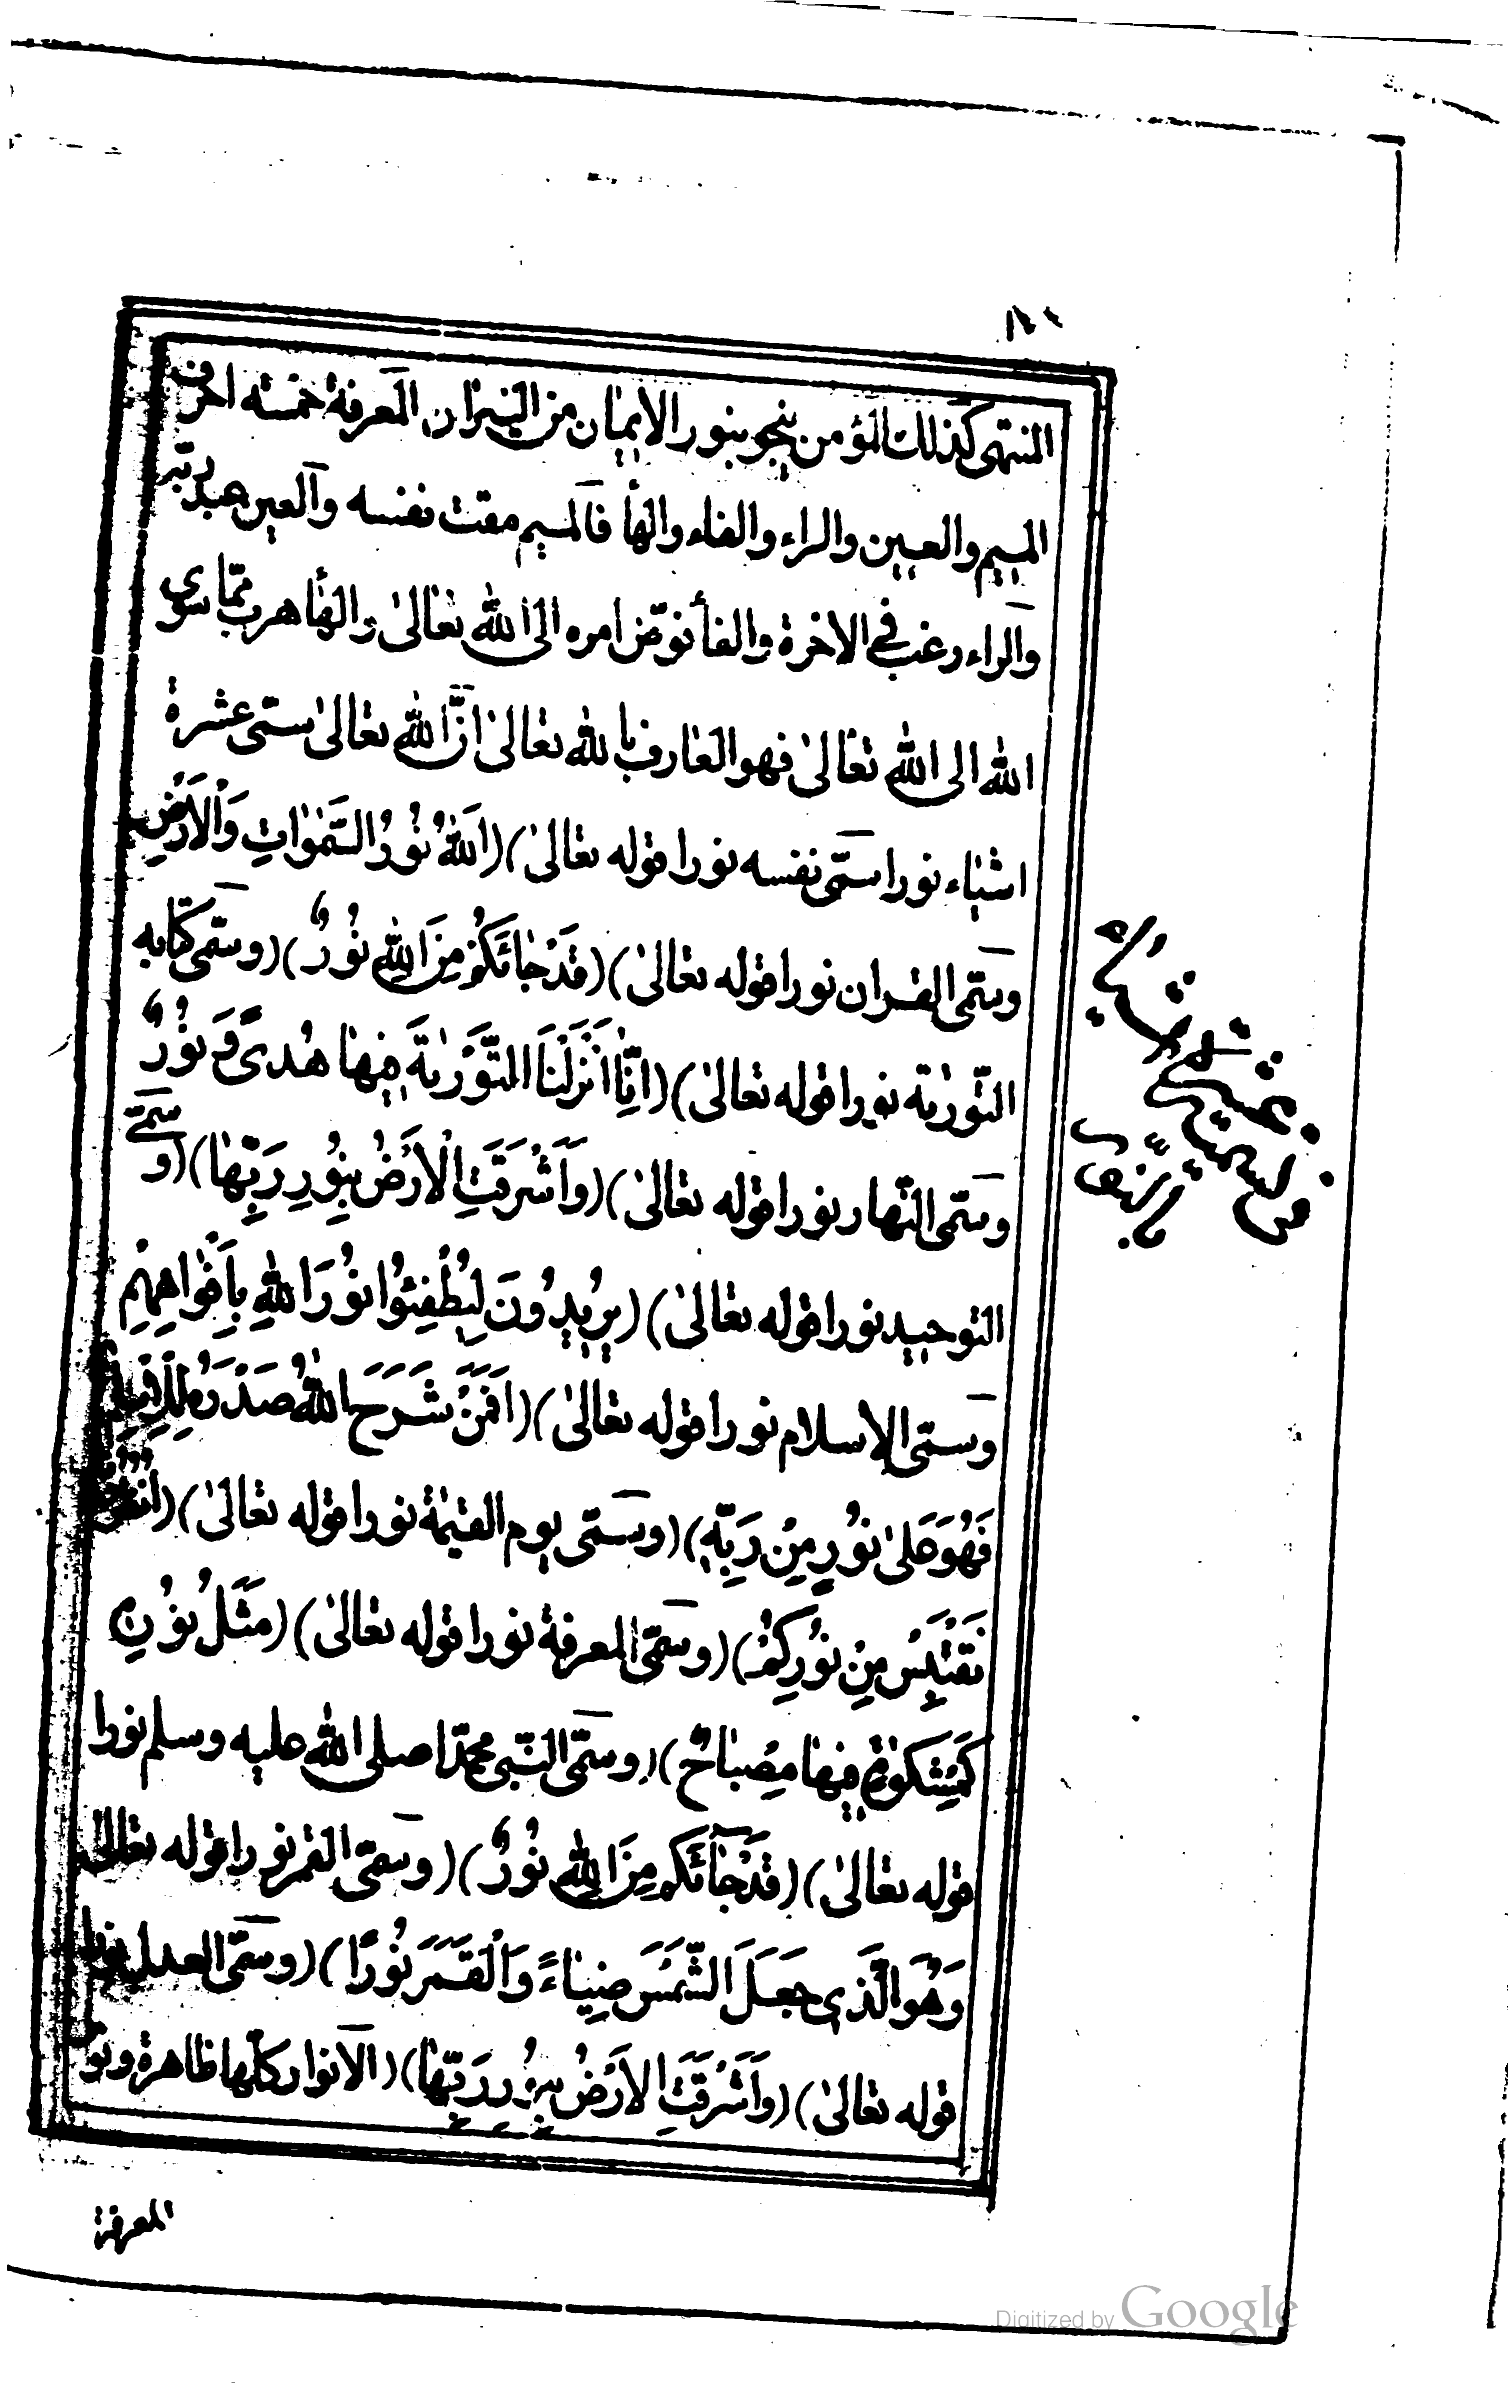 المنتهى كذلك المؤمن ينجو بنور الايمان من النيران المعرفة خمسه احرف
الميم والعين والراء والفاء والهأ فالميم مقت نفسه والعين عبد ربّه
والراء رغب فى الاخرة والفأ فوّض امره الى الله تعالىٰ والهأ هرب ممّا سوى
الله الى الله تعالىٰ فهو العارف بالله تعالىٰ انّ الله تعالىٰ سمّى عشرة
اشياء نورا سمّى نفسه نورا قوله تعالىٰ)(اَللّٰهُ نُوْرُ السَّمٰوَاتِ وَالْاَرْضِ
وسمّى القران نورا قوله تعالىٰ)(قَدْ جَائَكُمْ مِنَ اللّٰهِ نُوْرٌ)(وسمّى كتابه
التّورٰية نورا قوله تعالىٰ)(اِنَّا اَنْزَلْنَا التَّوْرٰيةَ فِيهَا هُدىً وَ نُوْرٌ
وسمّى النّهار نورا قوله تعالىٰ)(وَاَشْرَقَتِ الْاَرْضُ بِنُوْرِ رَبِّهَا)(وسمّى
التوحيد نورا قوله تعالىٰ)(يُرِيْدُونَ لِيُطْفِئُوا نُوْرَ اللّٰهِ بِاَفْوَاهِهِمْ
وسمّى الاسلام نورا قوله تعالىٰ)(اَفَمَنْ شَرَحَ اللّٰهُ صَدْرَهُ لِلْاِسْلَامِ
فَهُوَ عَلىٰ نُوْرٍ مِنْ رَبِّهٖ)(وسمّى يوم القيٰمة نورا قوله تعالىٰ)(انْظُرُوْنَا
نَقْتَبِسْ مِنْ نُوْرِكُمْ)(وسمّى المعرفة نورا قوله تعالىٰ)(مَثَلُ نُوْرِهٖ
كَمِشْكٰوةٍ فِيهَا مِصْبَاحٌ)(وسمّى النّبى محمدّا صلى الله عليه وسلم نورا
قوله تعالىٰ)(قَدْ جَآئَكُم مِنَ اللّٰهِ نُوْرٌ)(وسمّى القمر نورا قوله تعالىٰ
وَهُوَ الَّذى جَعَلَ الشَّمْسَ ضِيَاءً وَالْقَمَرَ نُوْرًا)(وسمّى العدل نورا
قوله تعالىٰ)(وَاَشْرَقَتِ الاَرْضُ بِنُوْرِ رَبِّهَا)(الانوار كلّها ظاهرة ونور
المعرفة
Digitized by Google